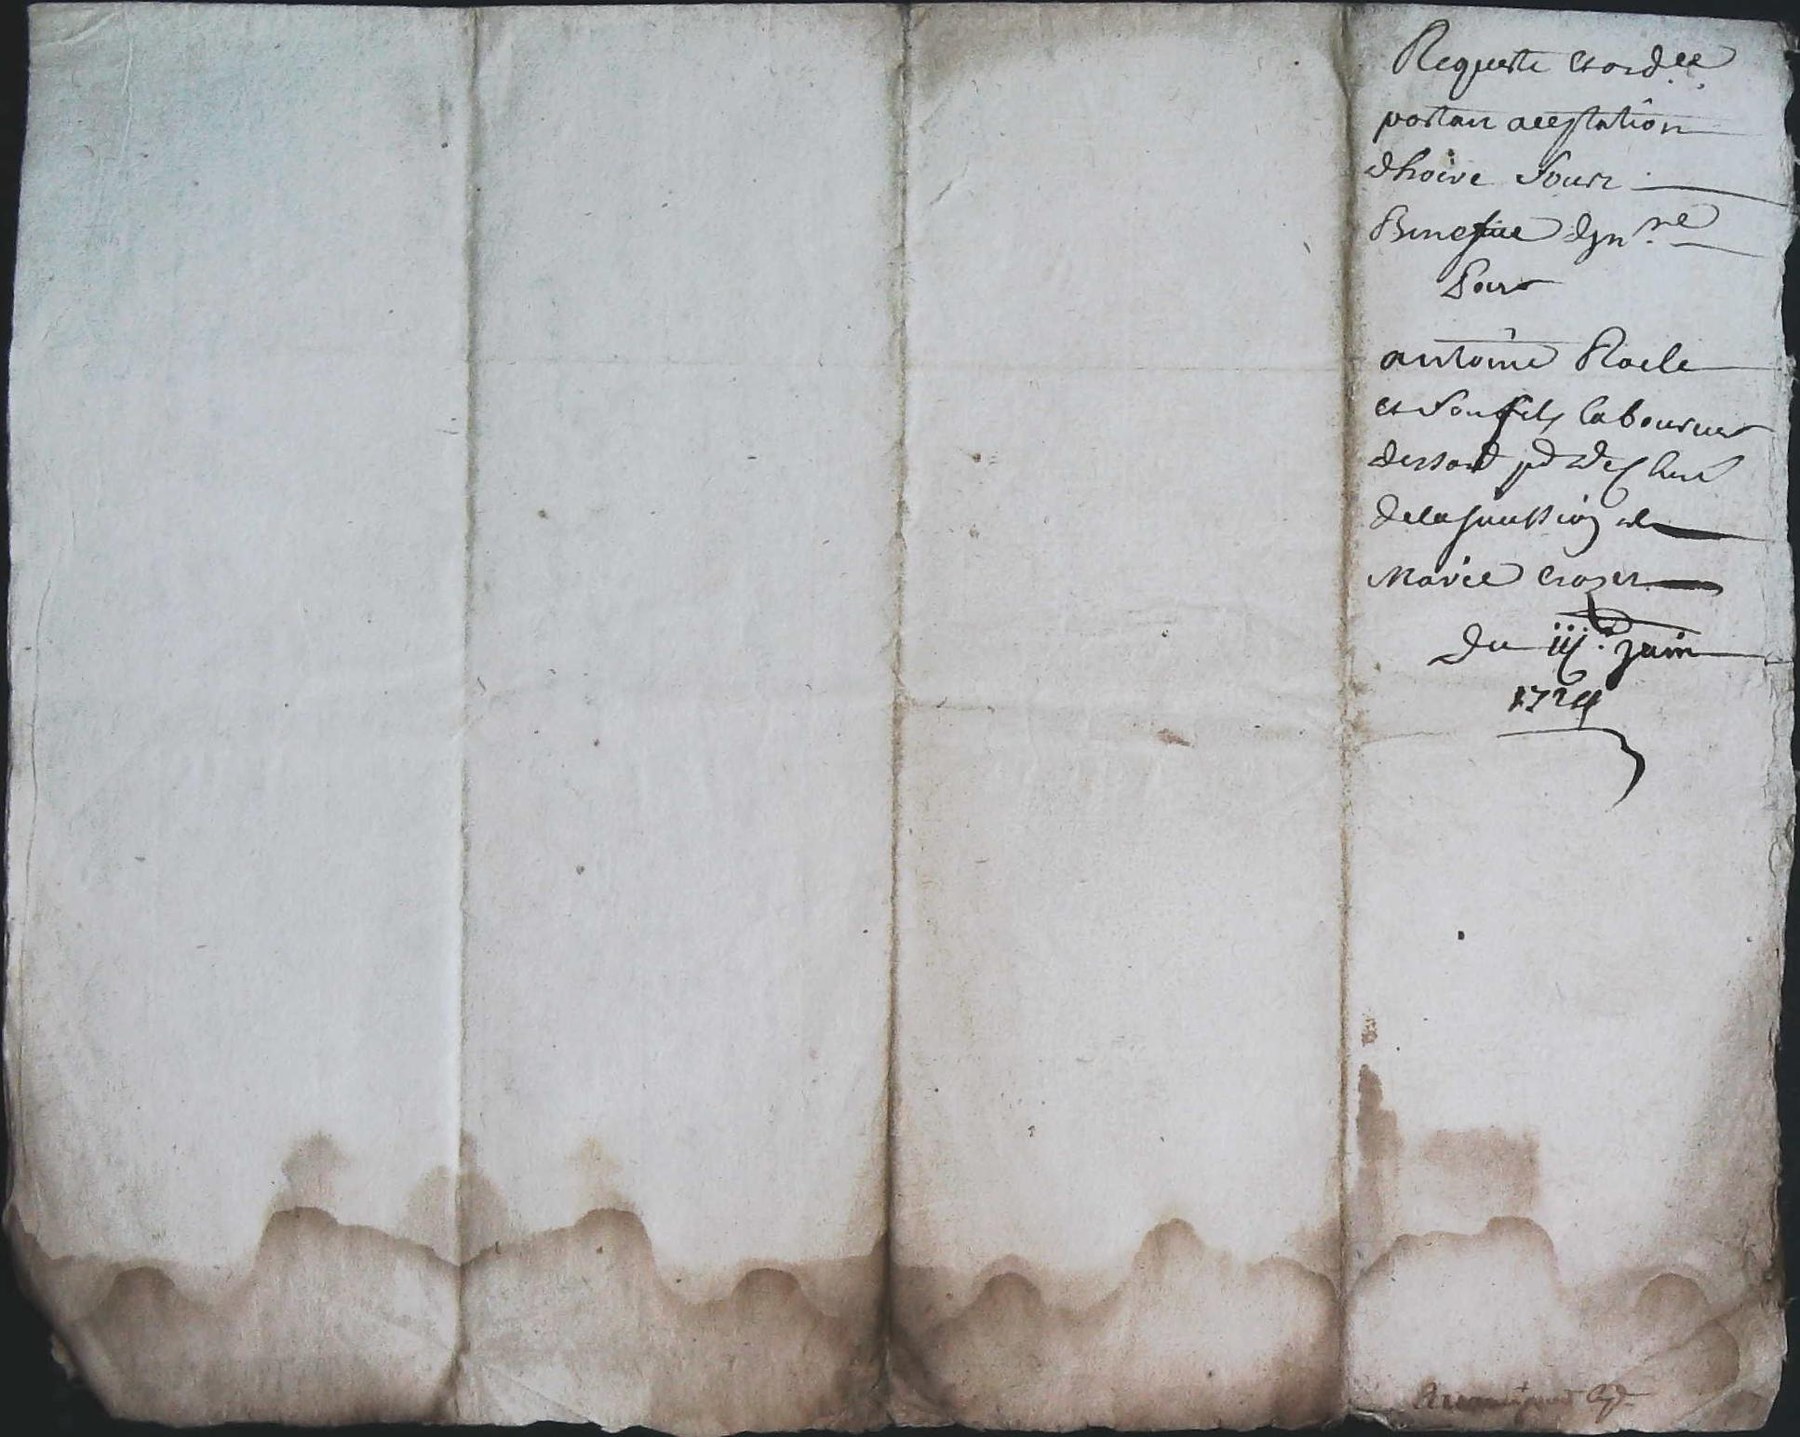 Requeste et ord.ce
portan aceptation
dhoirie souz
Benefice djn.re
Pour
antoine Racle
et son fils laboureur
de la sucssion de
Marie Crozet
Du iij.e juin
1724